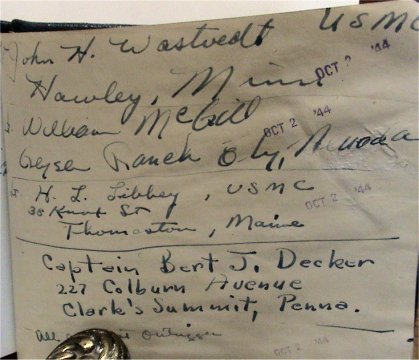 John H. Wastvedt USMC
Hawley, Minn OCT 2 '44
William McGill OCT 2 '44
Geyser Ranch Ely, Nevada
H. L. Libbey, USMC OCT 2 '44
38 Knox St
Thomaston, Maine OCT 2 '44
Captain Bert J. Decker
227 Colburn Avenue
Clark's Summit, Penna.
All Outrigger
OCT 2 '44